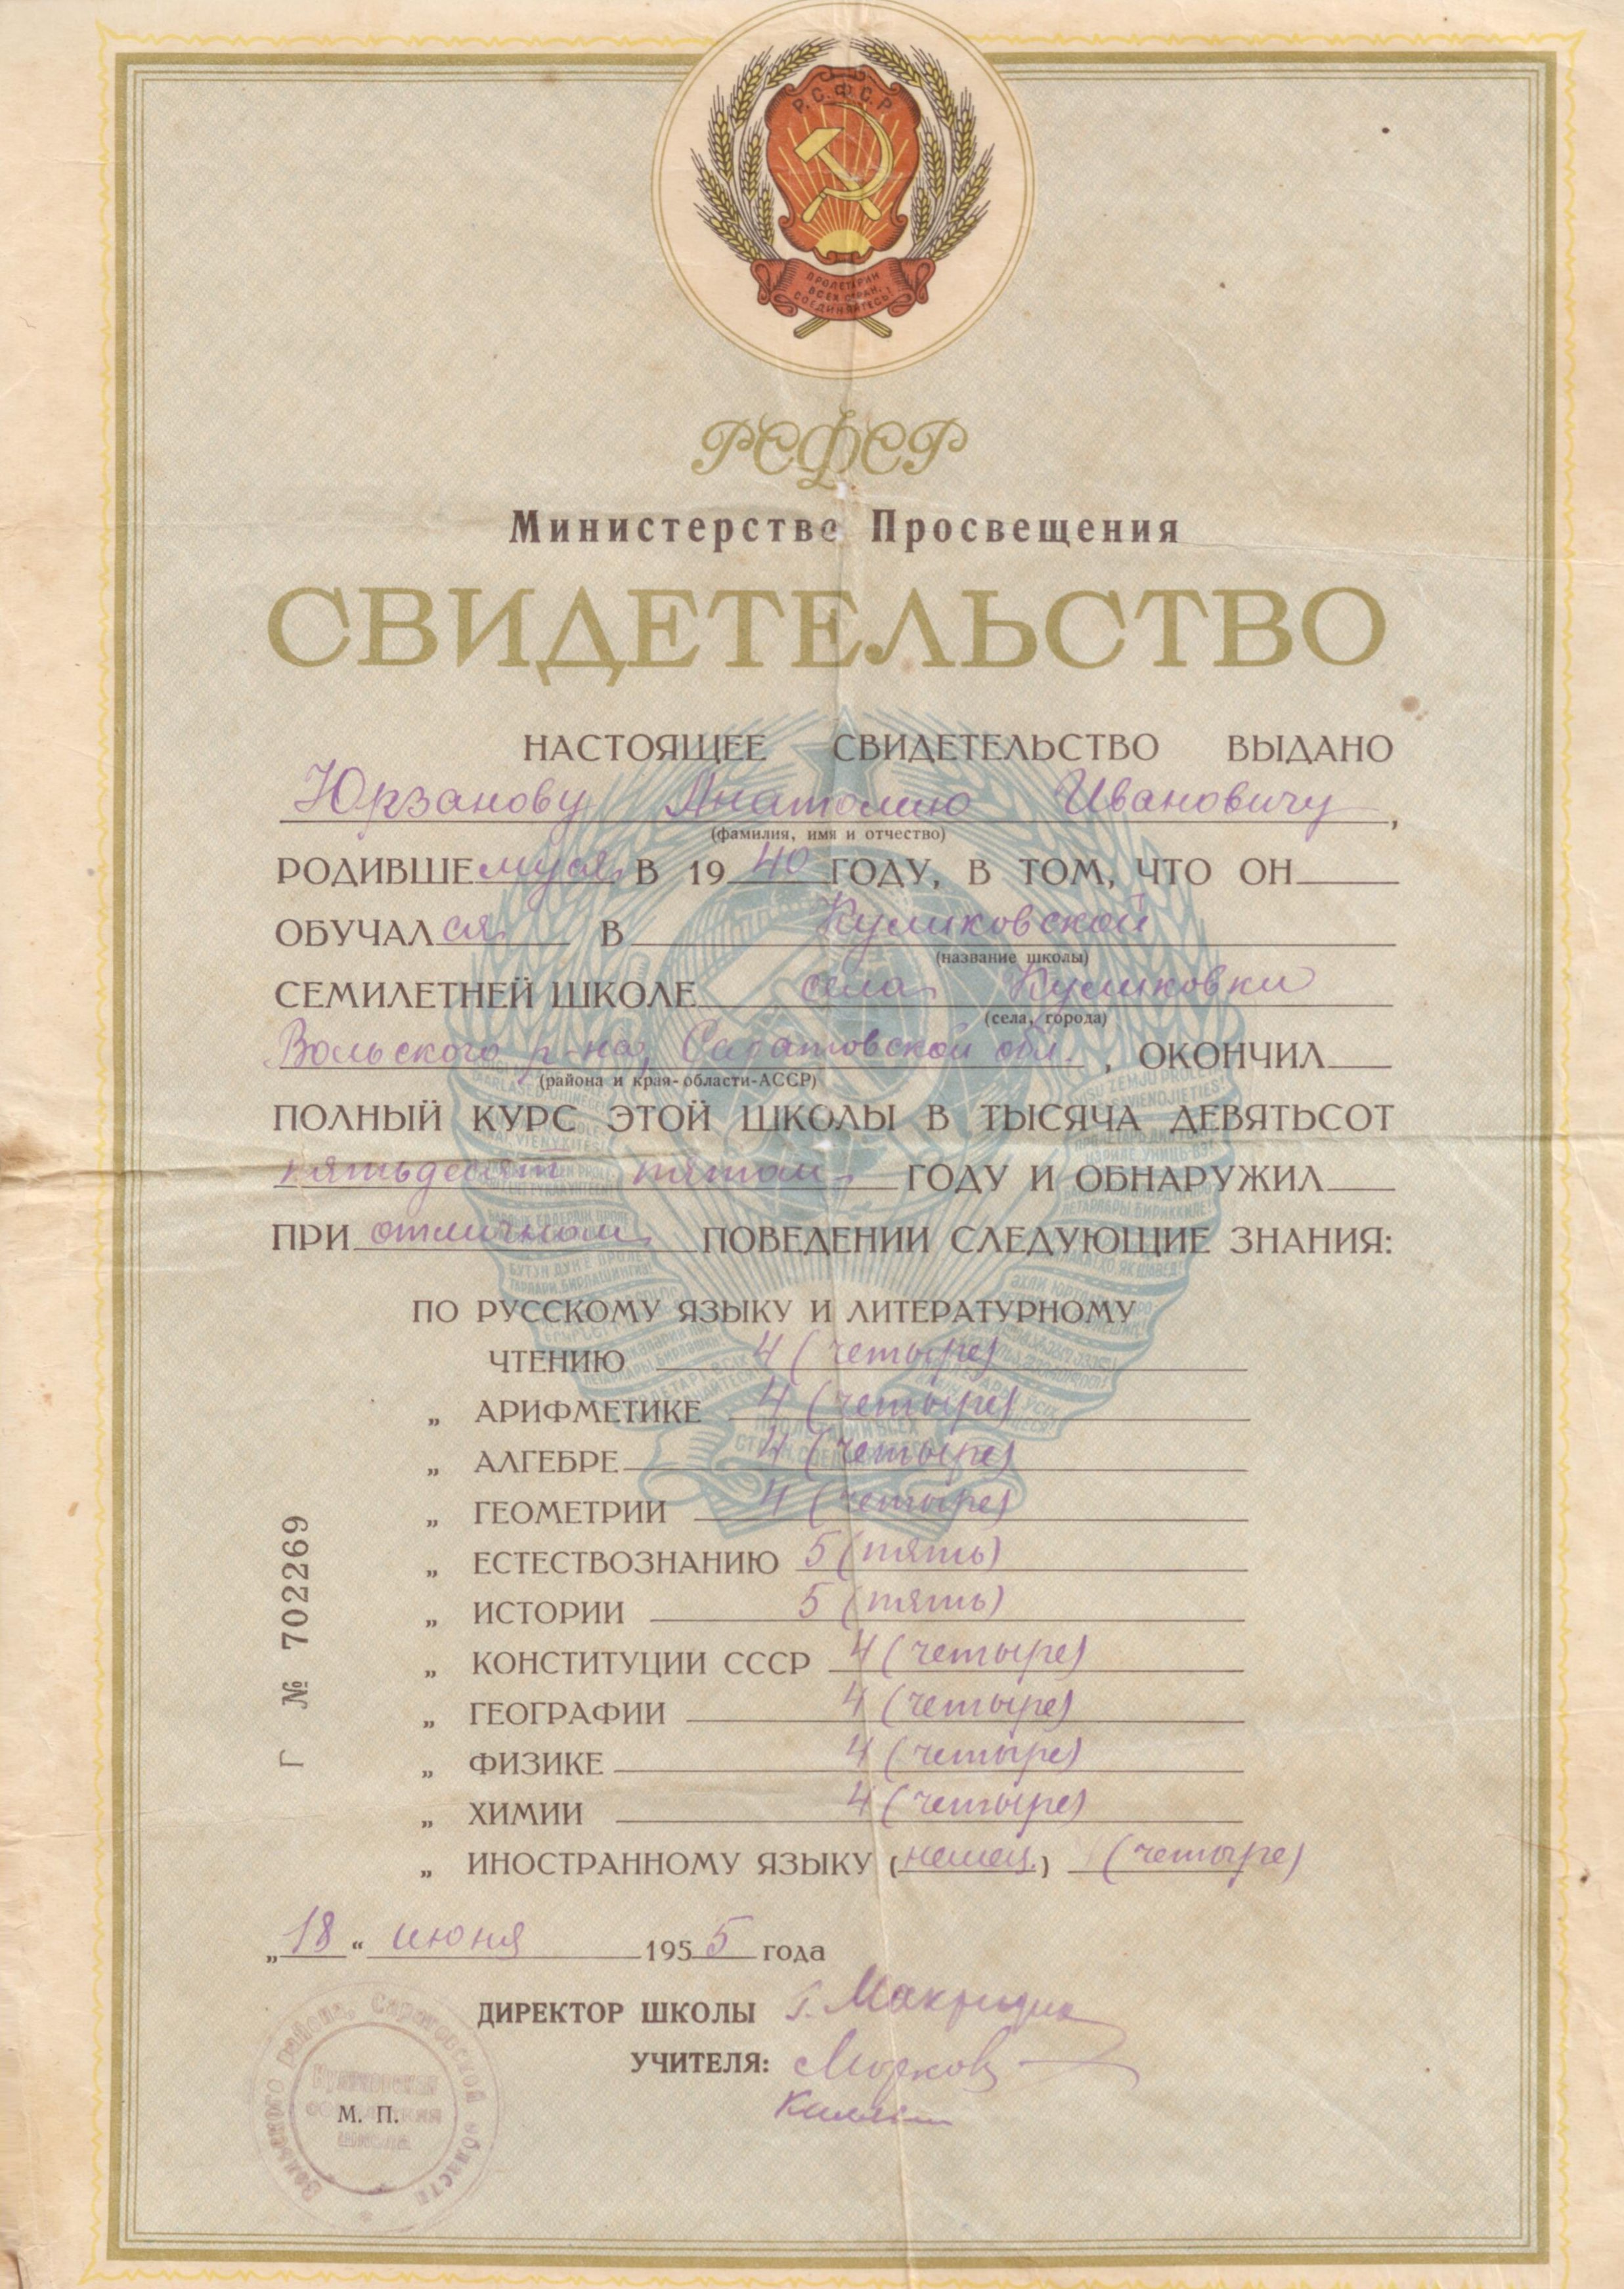 Р.С.Ф.С.Р
ПРОЛЕТАРИИ
ВСЕХ СТРАН,
СОЕДИНЯЙТЕСЬ!
РСФСР
Министерство Просвещения
СВИДЕТЕЛЬСТВО
НАСТОЯЩЕЕ СВИДЕТЕЛЬСТВО ВЫДАНО
Юрзанову Анатолию Ивановичу,
(фамилия, имя и отчество)
РОДИВШЕмуся В 1940 ГОДУ, В ТОМ, ЧТО ОН
ОБУЧАЛся В Куликовской
(название школы)
СЕМИЛЕТНЕЙ ШКОЛЕ села Куликовки
(села, города)
Вольского р-на, Саратовской обл., ОКОНЧИЛ
(района и края-области-АССР)
ПОЛНЫЙ КУРС ЭТОЙ ШКОЛЫ В ТЫСЯЧА ДЕВЯТЬСОТ
пятьдесят пятом ГОДУ И ОБНАРУЖИЛ
ПРИ отличном ПОВЕДЕНИИ СЛЕДУЮЩИЕ ЗНАНИЯ:
ПО РУССКОМУ ЯЗЫКУ И ЛИТЕРАТУРНОМУ
ЧТЕНИЮ 4 (четыре)
„ АРИФМЕТИКЕ 4 (четыре)
„ АЛГЕБРЕ 4 (четыре)
„ ГЕОМЕТРИИ 4 (четыре)
„ ЕСТЕСТВОЗНАНИЮ 5 (пять)
„ ИСТОРИИ 5 (пять)
„ КОНСТИТУЦИИ СССР 4 (четыре)
„ ГЕОГРАФИИ 4 (четыре)
„ ФИЗИКЕ 4 (четыре)
„ ХИМИИ 4 (четыре)
„ ИНОСТРАННОМУ ЯЗЫКУ (немец.) (четыре)
Г № 702269
„18“ июня 1955 года
ДИРЕКТОР ШКОЛЫ
УЧИТЕЛЯ:
М. П.
Вольского района, Саратовской области